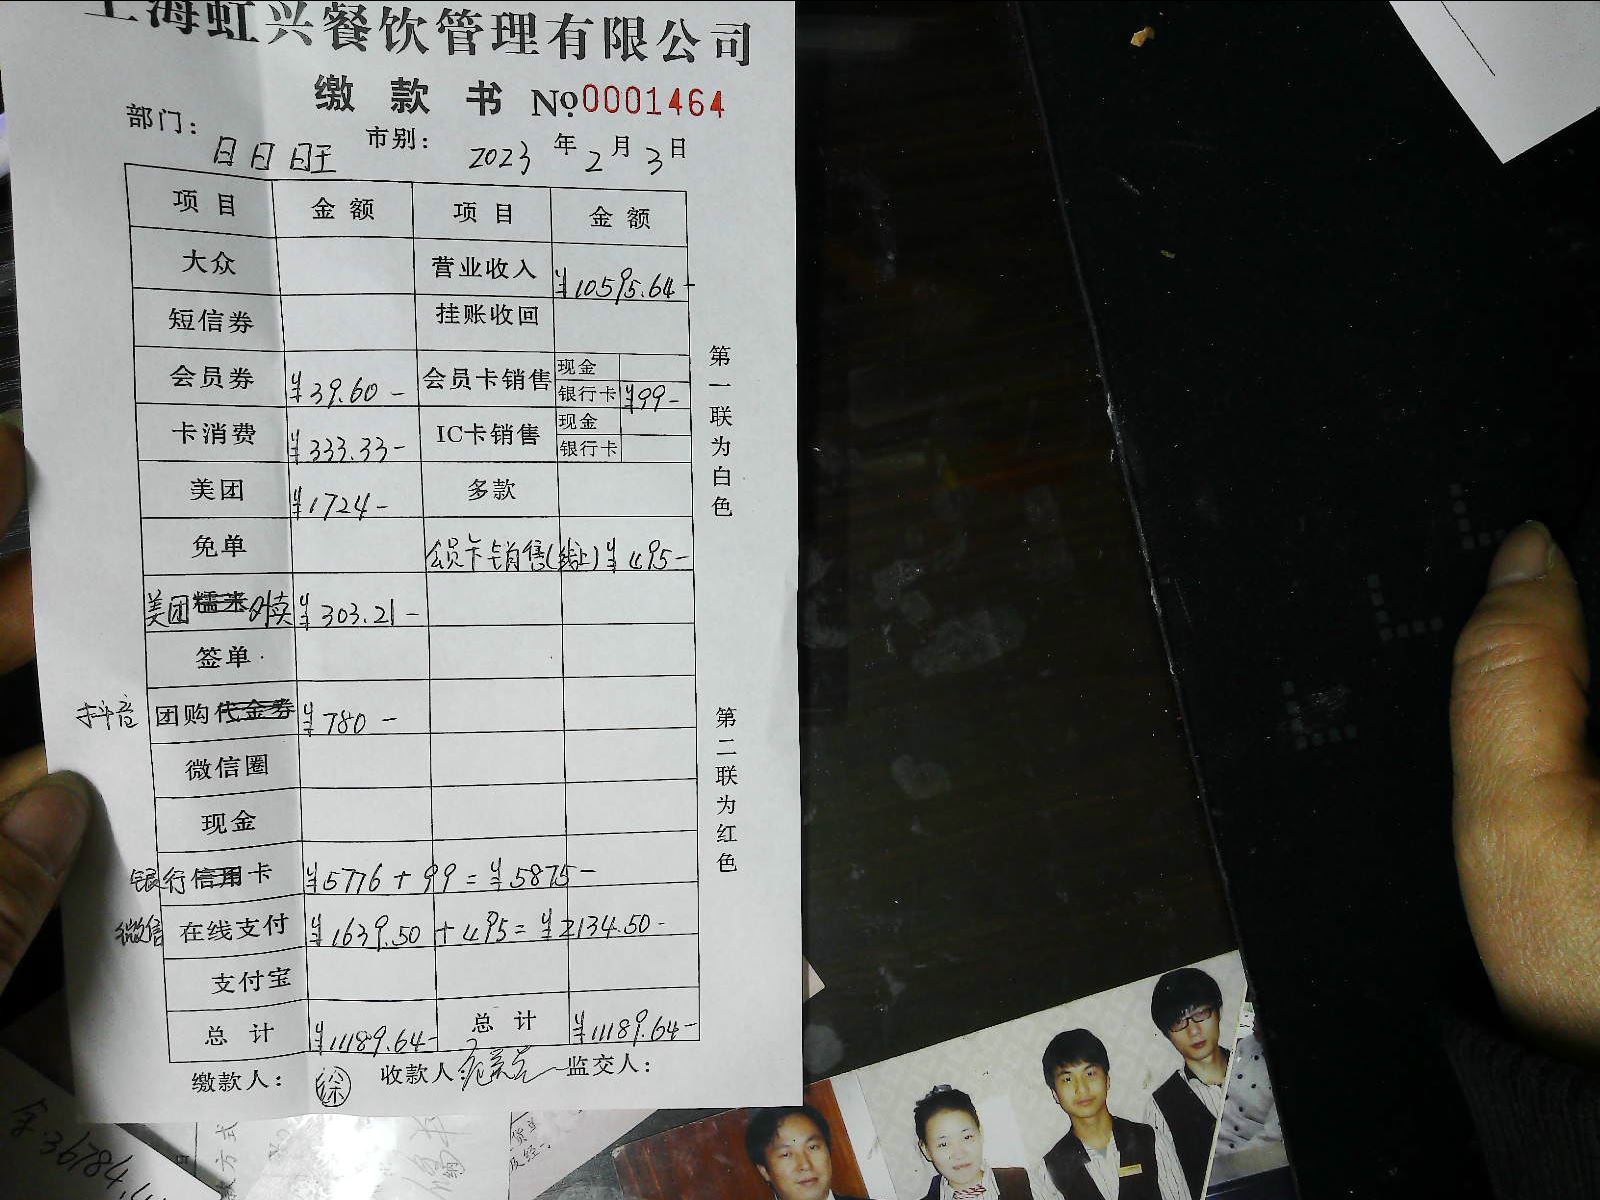 上海虹兴餐饮管理有限公司
缴款书 №0001464
部门：日日旺 市别： 2023年2月3日
项目 金额 项目 金额
大众 营业收入 ¥10595.64-
短信券 挂账收回
会员券 ¥39.60- 会员卡销售 现金
银行卡 ¥99-
卡消费 ¥333.33- IC卡销售 现金
银行卡
美团 ¥1724- 多款
免单 会员卡销售(线上) ¥495-
美团糯米外卖 ¥303.21-
签单
抖音 团购代金券 ¥780-
微信圈
现金
银行信用卡 ¥5776+99=¥5875-
微信 在线支付 ¥1639.50+495=¥2134.50-
支付宝
总计 ¥11189.64- 总计 ¥11189.64-
缴款人：徐 收款人 监交人：
第一联为白色
第二联为红色
36784
方式